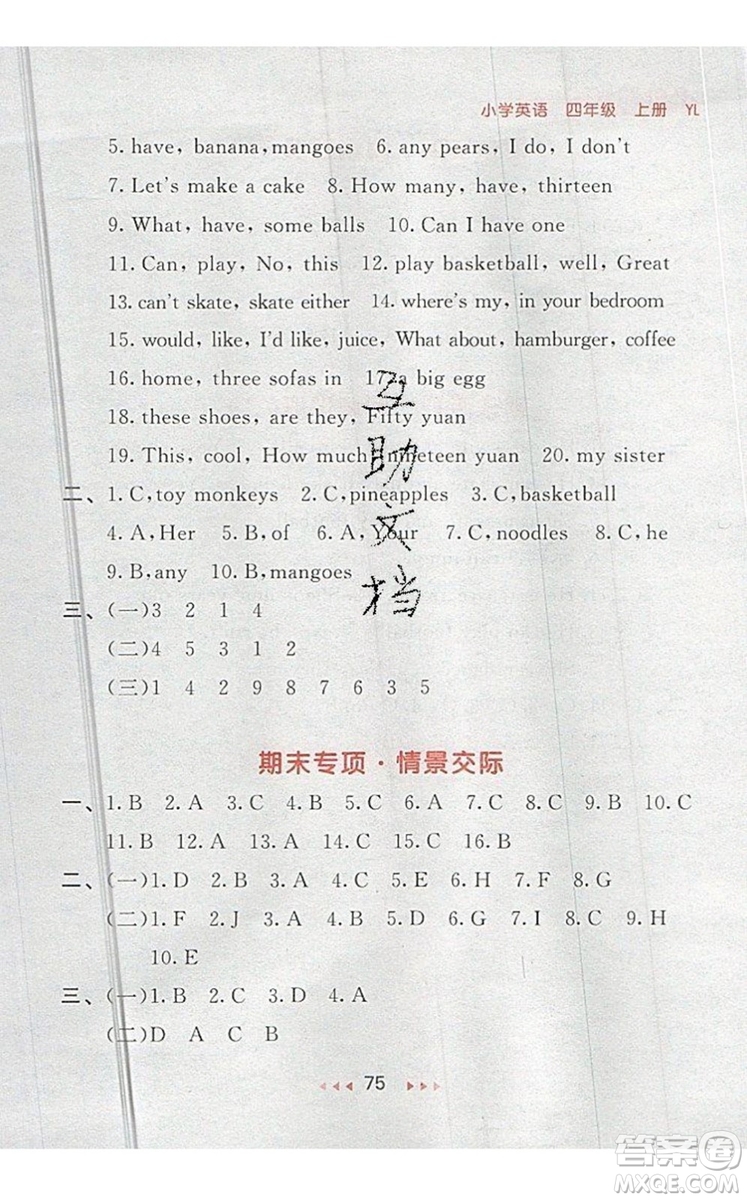 小学英语 四年级 上册 YL
5. have, banana, mangoes 6. any pears, I do, I don't
7. Let's make a cake 8. How many, have, thirteen
9. What, have, some balls 10. Can I have one
11. Can, play, No, this 12. play basketball, well, Great
13. can't skate, skate either 14. where's my, in your bedroom
15. would, like, I'd like, juice, What about, hamburger, coffee
16. home, three sofas in 17. a big egg
18. these shoes, are they, Fifty yuan
19. This, cool, How much, nineteen yuan 20. my sister
二、1. C, toy monkeys 2. C, pineapples 3. C, basketball
4. A, Her 5. B, of 6. A, Your 7. C, noodles 8. C, he
9. B, any 10. B, mangoes
三、(一)3 2 1 4
(二)4 5 3 1 2
(三)1 4 2 9 8 7 6 3 5
期末专项·情景交际
一、1. B 2. A 3. C 4. B 5. C 6. A 7. C 8. B 9. B 10. C
11. B 12. A 13. A 14. C 15. C 16. B
二、(一)1. D 2. B 3. A 4. C 5. E 6. H 7. F 8. G
(二)1. F 2. J 3. A 4. D 5. G 6. B 7. I 8. C 9. H
10. E
三、(一)1. B 2. C 3. D 4. A
(二)D A C B
75
互助文档
答案圈
MXQE.COM